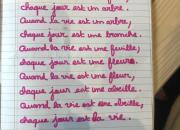 chaque jour est un arbre.
Quand la vie est un arbre,
chaque jour est une branche.
Quand la vie est une feuille,
chaque jour est une fleur.
Quand la vie est une fleur,
chaque jour est une abeille.
Quand la vie est une abeille,
chaque jour est la vie.